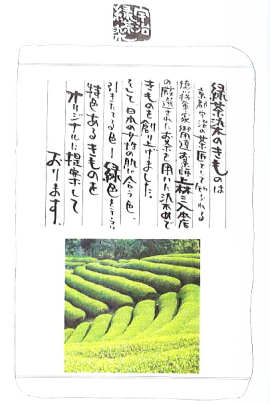 宇治
緑茶染
緑茶染のきものは
京都宇治の茶匠として知られる
徳川将軍家御用達お茶師 上林三入本店
の厳選されたお茶を用いた染めで
きものを創り上げました。
そして日本の女性の肌に合う色、
引きたてる色ー緑色という
特色あるきものを
オリジナルに提案して
おります。